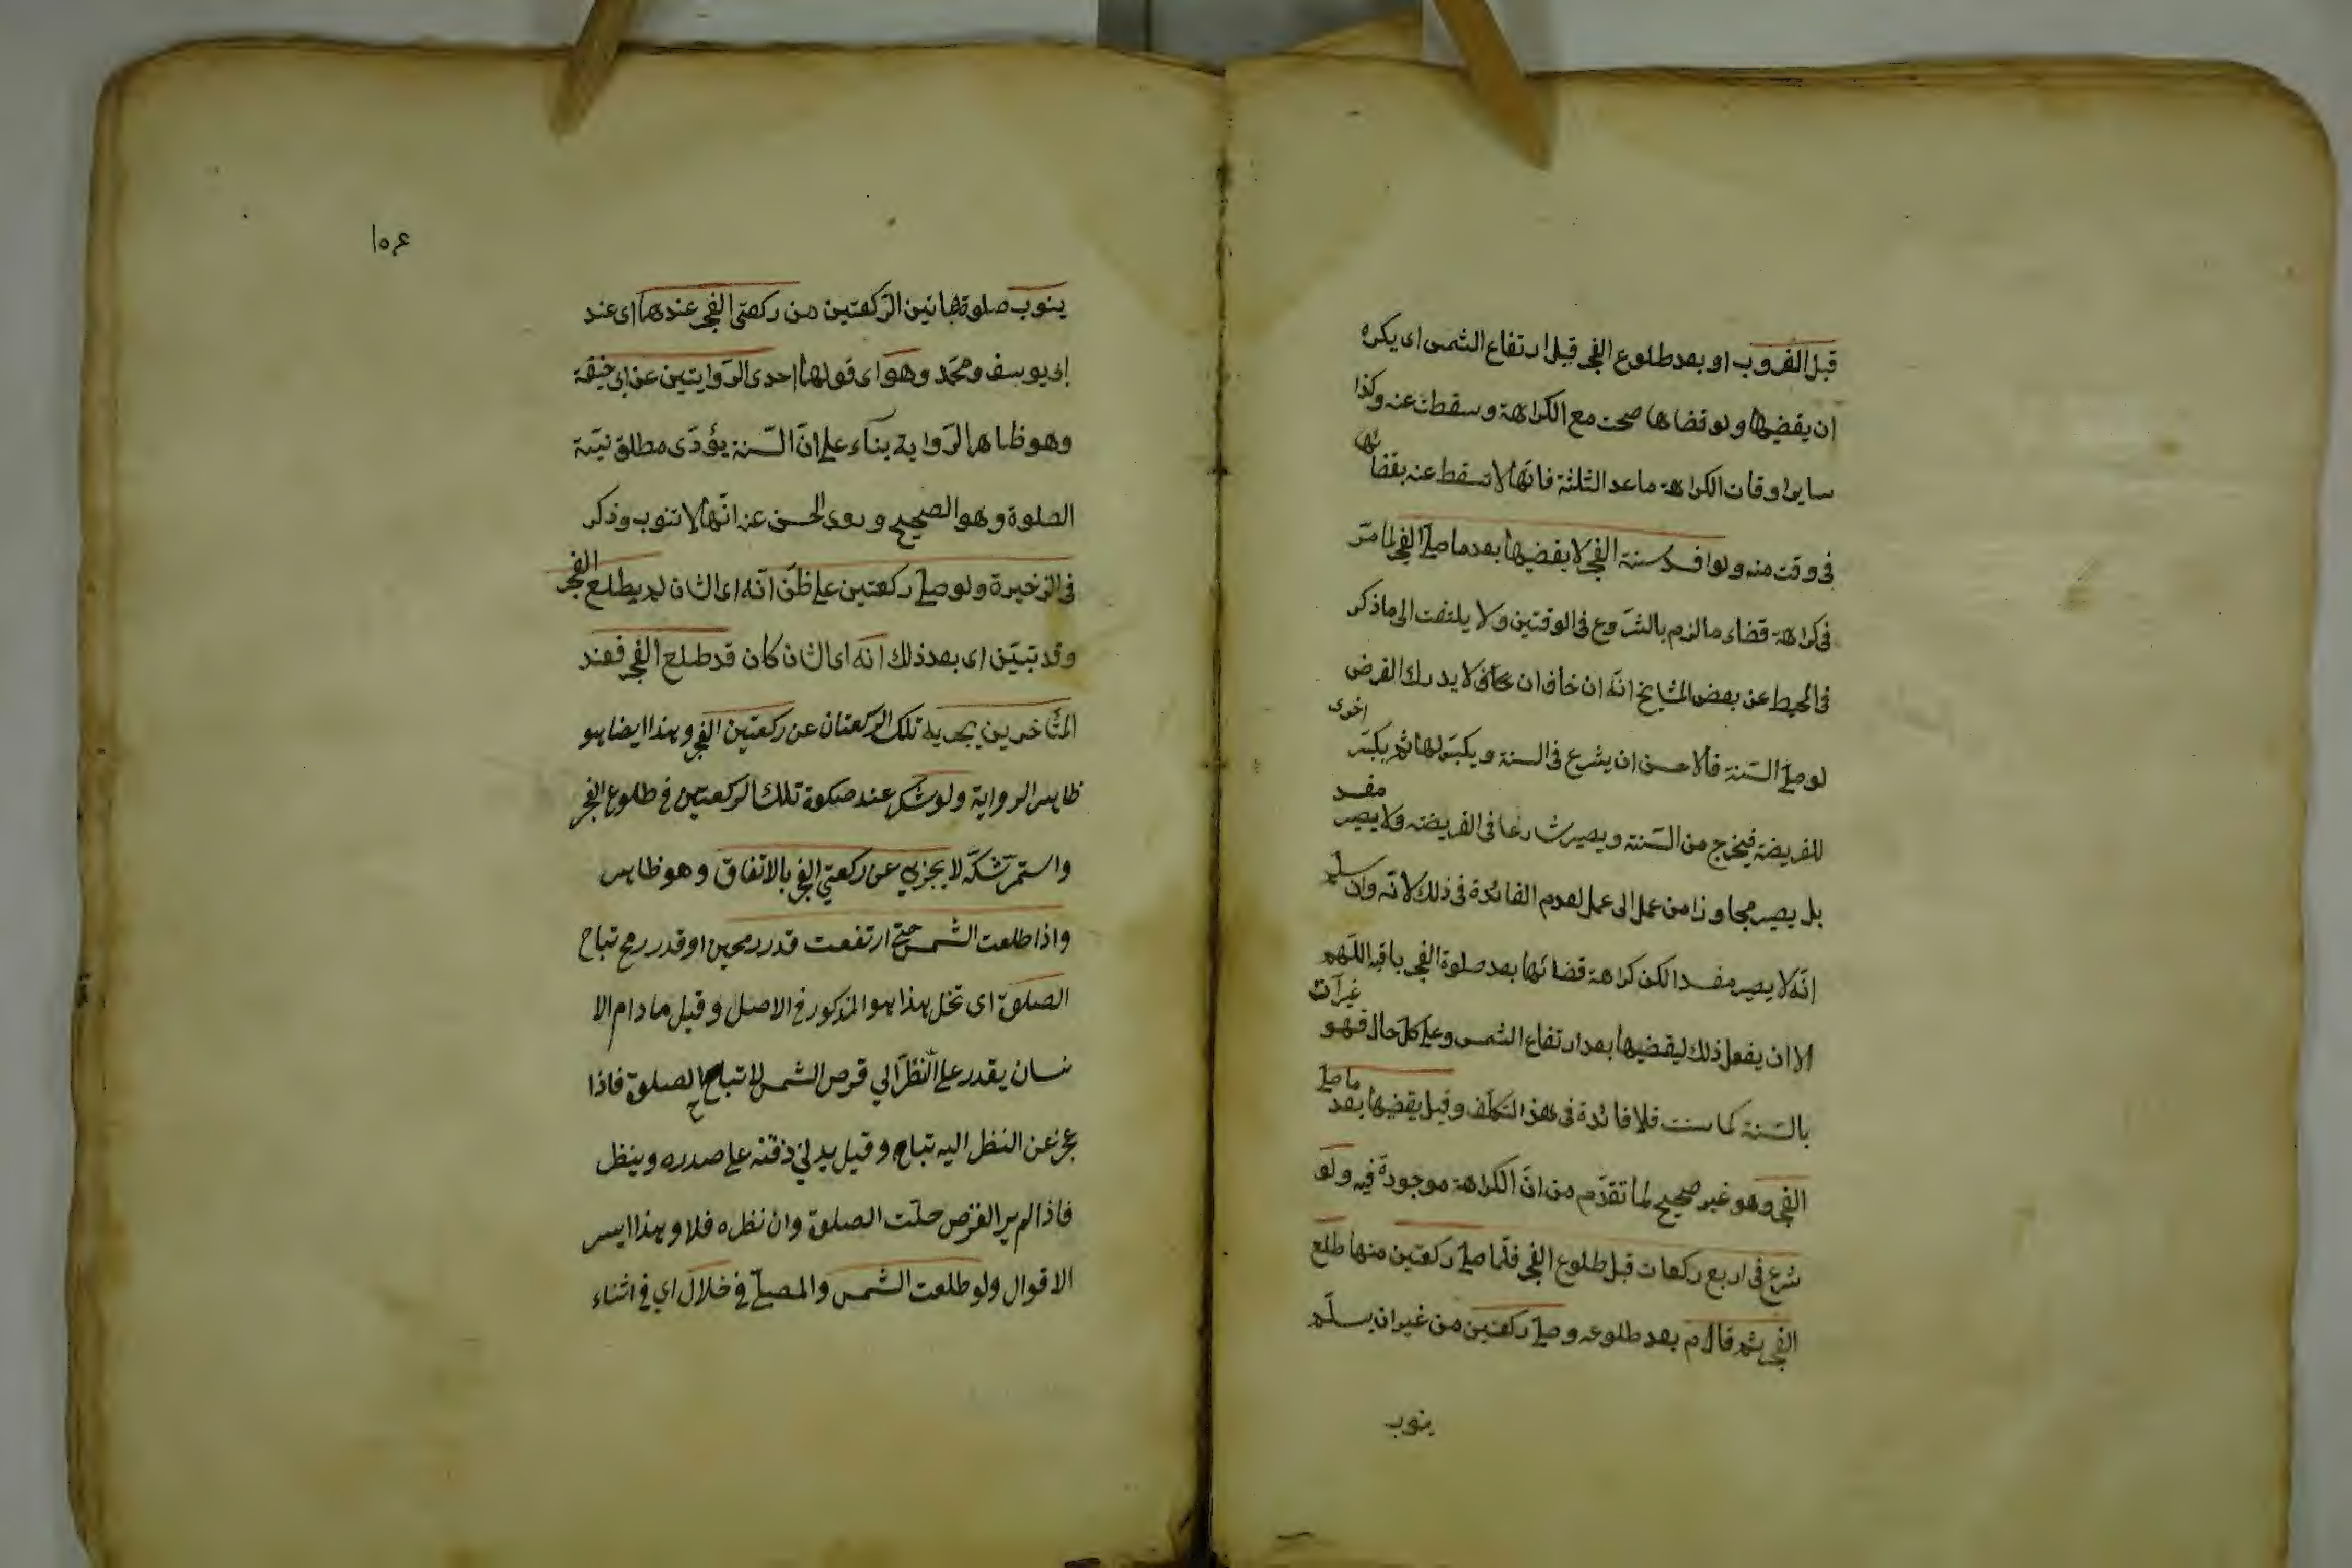 قبل الغروب او بعد طلوع الفجر قبل ارتفاع الشمس اى يكره
ان يقضيها ولو قضاها صحت مع الكراهة وسقطت عنه وكذا
ساير اوقات الكراهة ما عد الثلثة فانها لا تسقط عنه بقضائها
فى وقت منه ولو افسد سنة الفجر لا يقضيها بعد ما صلى الفجر لما مر
فى كراهة قضاء ما لزم بالشروع فى الوقتين ولا يلتفت الى ما ذكر
فى المحيط عن بعض المشايخ انه ان خاف ان لا يدرك الفرض
لو صلى السنة فالاحسن ان يشرع فى السنة ويكبر لها ثم يكبر اخرى
للفريضة فيخرج من السنة ويصير شارعا فى الفريضة ولا يصير مفسد
بل يصير مجاوزا من عمل الى عمل لعدم الفائدة فى ذلك لانه وان سلم
انه لا يصير مفسدا لكن كراهة قضائها بعد صلوة الفجر باقية اللهم
الا ان يفعل ذلك ليقضيها بعد ارتفاع الشمس وعلى كل حال فهو غير آت
بالسنة كما سنت فلا فائدة فى هذا التكلف وقيل يقضيها بعد ما صلى
الفجر وهو غير صحيح لما تقدم من ان الكراهة موجودة فيه ولو
شرع فى اربع ركعات قبل طلوع الفجر فلما صلى ركعتين منها طلع
الفجر ثم قام بعد طلوعه وصلى ركعتين من غير ان يسلم
ينوب
١٥٤
ينوب صلوة هاتين الركعتين من ركعتى الفجر عندهما اى عند
ابى يوسف ومحمد وهو اى قولهما احدى الروايتين عن ابى حنيفة
وهو ظاهر الرواية بناء على ان السنة يؤدى مطلق نية
الصلوة وهو الصحيح وروى الحسن عنه انها لا تنوب وذكر
فى الزخيرة ولو صلى ركعتين على ظن انه اى الشان لم يطلع الفجر
وقد تبين اى بعد ذلك انه اى الشان كان قد طلع الفجر فعند
المتأخرين يجزيه تلك الركعتان عن ركعتين الفجر وهذا ايضا هو
ظاهر الرواية ولو شك عند صلوة تلك الركعتين فى طلوع الفجر
واستمر شكه لا يجزي عن ركعتي الفجر بالاتفاق وهو ظاهر
واذا طلعت الشمس حتى ارتفعت قدر رمحين او قدر رمح تباح
الصلوة اى تحل هذا هو المذكور فى الاصل وقيل ما دام الا
نسان يقدر على النظر الي قرص الشمس لا تباح الصلوة فاذا
عجز عن النظر اليه تباح وقيل يدلي ذقنه على صدره وينظر
فاذا لم ير القرص حلت الصلوة وان نظره فلا وهذا ايسر
الاقوال ولو طلعت الشمس والمصلى في خلال اي في اثناء